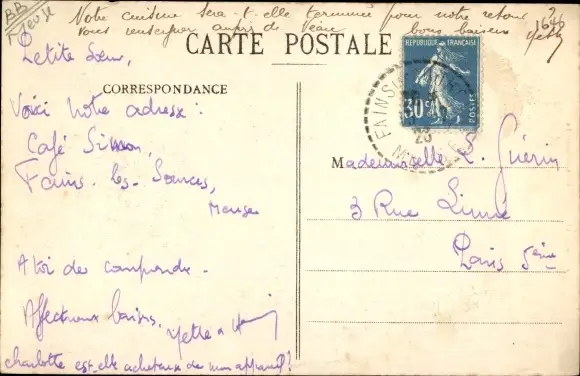 Notre cuisine sera-t-elle terminée pour notre retour
vous renseigner auprès de
bons baisers
BB
Meuse
1646
CARTE POSTALE
CORRESPONDANCE
Petite Sœur,
Voici notre adresse :
Café Simon,
Fains-les-Sources,
Meuse
A toi de comprendre.
Affectueux baisers.
charlotte est-elle acheteuse de mon appareil ?
REPUBLIQUE FRANÇAISE
30c
POSTES
FAINS
Mademoiselle L. Guérin
3 Rue Linné
Paris 5ème